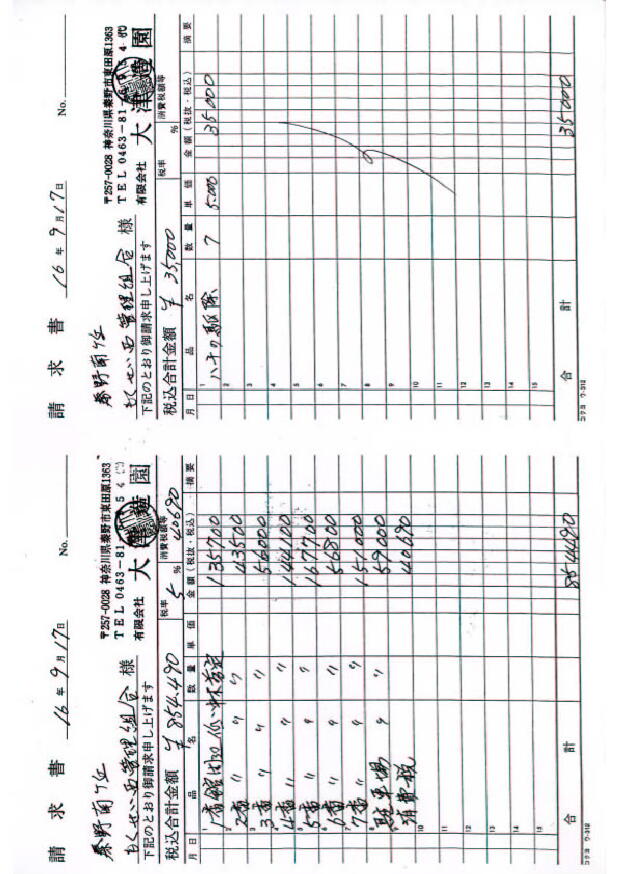 請求書
16年9月17日
No.
秦野南が丘
様
下記のとおり御請求申し上げます
〒257-0028 神奈川県秦野市東田原1363
TEL 0463-81
有限会社 大津造園
税込合計金額 ¥854,490
税率 5 %
消費税額等 40690
月日 品名 数量 単価 金額(税抜・税込) 摘要
1 1番館 135700
2 2番 〃 〃 43500
3 3番 〃 〃 56000
4 4番 〃 〃 144100
5 5番 〃 〃 167700
6 6番 〃 〃 56800
7 7番 〃 〃 151000
8 駐車場 〃 〃 59000
9 消費税 40690
10
11
12
13
14
15
合計 854490
コクヨ ウ-312
請求書
16年9月17日
No.
秦野南が丘
様
下記のとおり御請求申し上げます
〒257-0028 神奈川県秦野市東田原1363
TEL 0463-81
有限会社 大津造園
税込合計金額 ¥35,000
税率 %
消費税額等
月日 品名 数量 単価 金額(税抜・税込) 摘要
1 ハチの駆除 7 5.000 35000
2
3
4
5
6
7
8
9
10
11
12
13
14
15
合計 35000
コクヨ ウ-312